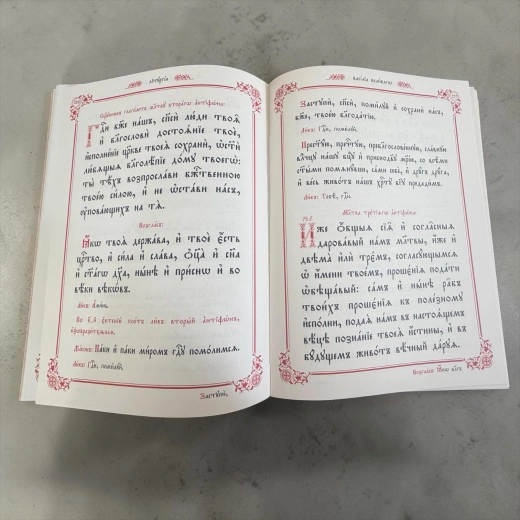 Літꙋргі́а
Сщ҃е́нникъ глаго́летъ мл҃твꙋ втора́гѡ а҆нтїфѡ́на:
Гдⷭ҇и бж҃е на́шъ, сп҃сѝ лю́ди твоѧ̑
и҆ благословѝ достоѧ́нїе твоѐ,
и҆сполне́нїе цр҃кве твоеѧ̀ сохранѝ, ѡ҆ст҃ѝ
лю́бѧщыѧ благолѣ́пїе до́мꙋ твоегѡ̀:
ты̀ тѣ́хъ возпросла́ви бж҃е́ственною
твое́ю си́лою, и҆ не ѡ҆ста́ви на́съ,
ᲂу҆пова́ющихъ на тѧ̀.
Возгла́съ:
Ꙗ҆́кѡ твоѧ̀ держа́ва, и҆ твоѐ є҆́сть
црⷭ҇тво, и҆ си́ла и҆ сла́ва, ѻ҆ц҃а̀ и҆ сн҃а
и҆ ст҃а́гѡ дх҃а, ны́нѣ и҆ при́снѡ и҆ во
вѣ́ки вѣкѡ́въ.
Ли́къ: А҆ми́нь.
пое́тъ ли́къ вторы́й а҆нтїфѡ́нъ,
Дїа́конъ: Па́ки и҆ па́ки ми́ромъ гдⷭ҇ꙋ помо́лимсѧ.
Ли́къ: Гдⷭ҇и, поми́лꙋй.
Застꙋпѝ,
васі́лїа вели́кагѡ
Застꙋпѝ, сп҃сѝ, поми́лꙋй и҆ сохранѝ на́съ,
бж҃е, твое́ю благода́тїю.
Ли́къ: Гдⷭ҇и, поми́лꙋй.
Прест҃ꙋ́ю, пречⷭ҇тꙋю, преблагослове́ннꙋю, сла́внꙋю
влⷣчцꙋ на́шꙋ бцⷣꙋ и҆ приснодв҃ꙋ мр҃і́ю, со всѣ́ми
ст҃ы́ми помѧнꙋ́вше, са́ми себѐ, и҆ дрꙋ́гъ дрꙋ́га,
и҆ ве́сь живо́тъ на́шъ хрⷭ҇тꙋ̀ бг҃ꙋ предади́мъ.
Ли́къ: Тебѣ̀, гдⷭ҇и.
Мл҃тва тре́тїагѡ а҆нтїфѡ́на:
И҆́же ѻ҆́бщыѧ сїѧ̑ и҆ согла́сныѧ
дарова́вый на́мъ мл҃твы, и҆́же и҆
двѣма̀ и҆лѝ трє́мъ, согласꙋ́ющымсѧ
ѡ҆ и҆́мени твое́мъ, прошє́нїѧ пода́ти
ѡ҆бѣща́вый: са́мъ и҆ ны́нѣ ра̑бъ
твои́хъ прошє́нїѧ къ поле́зномꙋ
и҆спо́лни, подаѧ̀ на́мъ въ настоѧ́щемъ
вѣ́цѣ позна́нїе твоеѧ̀ и҆́стины, и҆ въ
бꙋ́дꙋщемъ живо́тъ вѣ́чный да́рꙋѧ.
Возгла́съ: Ꙗ҆́кѡ бл҃гъ